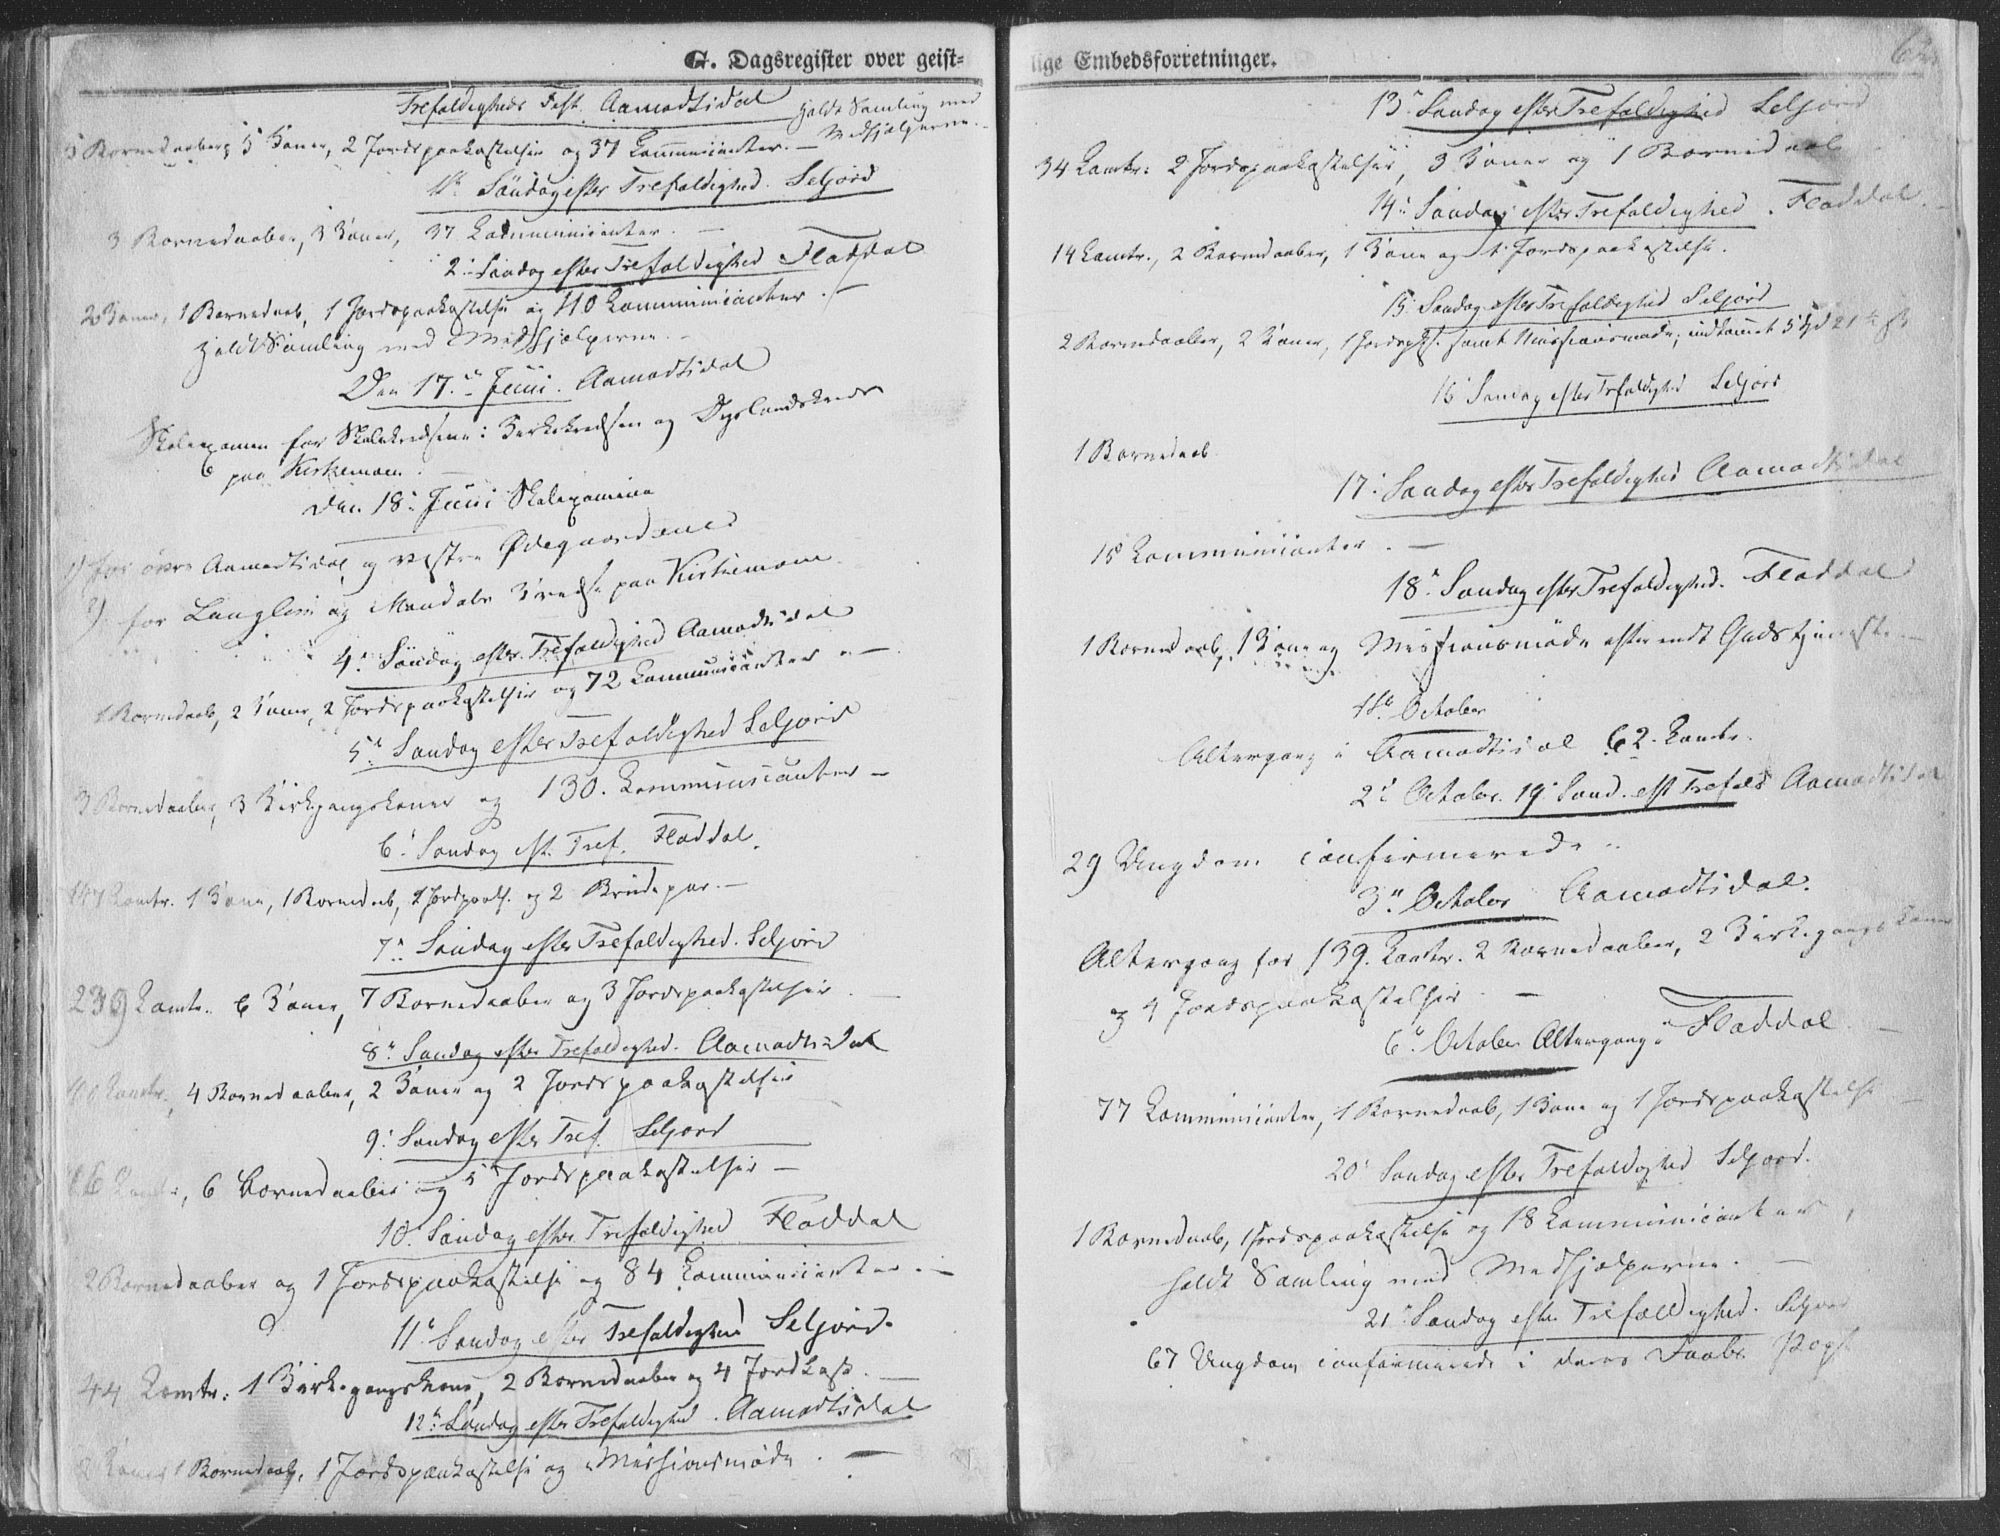 G. Dagsregister over geist-
Trefoldigheds Fest. Aamodtsdal holdt Samling med
Medhjælperne.
5 Barnedaaber, 5 Koner, 2 Jordpaakastelser og 37 Communicanter. —
1ste Søndag efter Trefoldighed. Seljord
3 Barnedaaber, 3 Koner, 37 Communicanter. —
2. Søndag efter Trefoldighed Fladdal
2 Koner, 1 Barnedaab, 1 Jordspaakastelse og 40 Communicanter. —
holdt Samling med Medhjælperne. —
Den 17de Juni. Aamodtsdal
Skoleexamen for Skolekredsene: Kirkekredsen og
paa Kirkemoen. —
den 18. Juni Skoleexamina
1) for øvre Aamodtsdal og vestre Ødegaardene
2) for Langlim og Mandals Kreds paa Kirkemoen
4. Søndag efter Trefoldighed Aamodtsdal
1 Barnedaab, 2 Koner, 2 Jordspaakastelser og 72 Communicanter. —
5. Søndag efter Trefoldighed Seljord
3 Barnedaaber, 3 Kirkgangskoner og 130. Communicanter —
6. Søndag eft. Tref. Fladdal.
147 Comtr. 1 Kone, 1 Barnedaab, 2 Jordpaaks. og 2 Brudepar. —
7. Søndag efter Trefoldighed. Seljord
239 Comtr. 6 Koner, 7 Barnedaaber og 3 Jordspaakastelser. —
8. Søndag efter Trefoldighed. Aamodtsdal
Comtr., 4 Barnedaaber, 2 Koner og 2 Jordspaakastelser
9. Søndag efter Tref. Seljord
Comtr., 6 Barnedaaber og 5 Jordspaakastelser —
10. Søndag efter Trefoldighed Fladdal
2 Barnedaaber og 1 Jordspaakastelse og 84 Communicanter. —
11. Søndag efter Trefoldighed Seljord.
44 Comtr: 1 Kirkegangskone, 2 Barnedaaber og 4 Jordkast. —
12. Søndag efter Trefoldighed. Aamodtsdal
2 Koner 1 Barnedaab, 1 Jordspaakastelse og Missionsmøde. —
lige Embedsforretninger.
62
13. Søndag efter Trefoldighed Seljord
34 Comtr: 2 Jordspaakastelser, 3 Koner og 1 Barnedaab
14. Søndag efter Trefoldighed. Fladdal.
14 Comtr., 2 Barnedaaber, 1 Kone og 1 Jordspaakastelse.
15. Søndag efter Trefoldighed Seljord
2 Barnedaaber, 2 Koner, 1 Jordspk. samt Missionsmøde, indkommet 5 Spd 21 ß
16. Søndag efter Trefoldighed Seljord
1 Barnedaab
17. Søndag efter Trefoldighed Aamodtsdal
15 Communicanter. —
18. Søndag efter Trefoldighed. Fladdal
1 Barnedaab, 1 Kone og Missionsmøde efter endt Gudstjeneste. —
1ste October
Altergang i Aamodtsdal 62. Comtr.
2. October. 19. Sønd. eft Trefold Aamodtsdal
29 Ungdom confirmerede.
3. October Aamodtsdal.
Altergang for 139. Comtr. 2 Barnedaaber, 2 Kirkegangskoner
og 4 Jordspaakastelser —
6. October Altergang i Fladdal. —
77 Communicanter, 1 Barnedaab, 1 Kone og 1 Jordspaakastelse —
20. Søndag efter Trefoldighed Seljord.
1 Barnedaab, 1 Jordspaakastelse og 18 Communicanter,
holdt Samling med Medhjælperne. —
21. Søndag efter Trefoldighed. Seljord
67 Ungdom confirmerede i deres Daabs Pagt